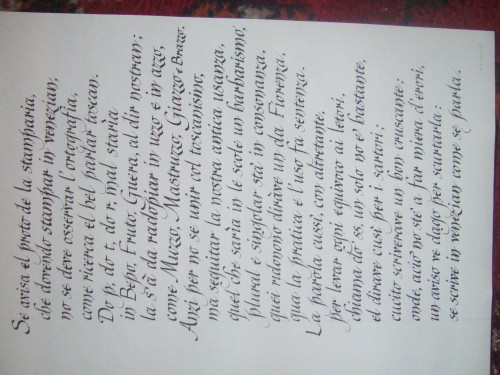 Se avisa el proto de la stamparia,
che dovendo stampar in venezian,
no se deve osservar l'ortografia,
come ricerca el bel parlar toscan.
Do p, do t, do r, mal staria
in Bepo, Fruto, Guera, al dir nostran;
la s'à da radopiar in uzzo e in azzo,
come Muzzo, Mastruzzo, Giazzo e Brazzo.
Anzi per no se unir col toscanismo,
ma seguitar la nostra antica usanza,
quel che saria in le scole un barbarismo,
plural e singolar sta' in consonanza,
quei ridemono dirave un da Fiorenza,
qua la pratica e l'uso fa sentenza.
La parola cussì, con altretante,
per levar ogni equivoco ai letori,
chiama do' ss, un solo no e' bastante,
el dirave cusì per i sartori;
cucito scriverave un bon cruscante;
onde, aciò no ste' a far miera d'erori,
un aviso ve dago per scurtarla:
se scrive in venezian come se parla.